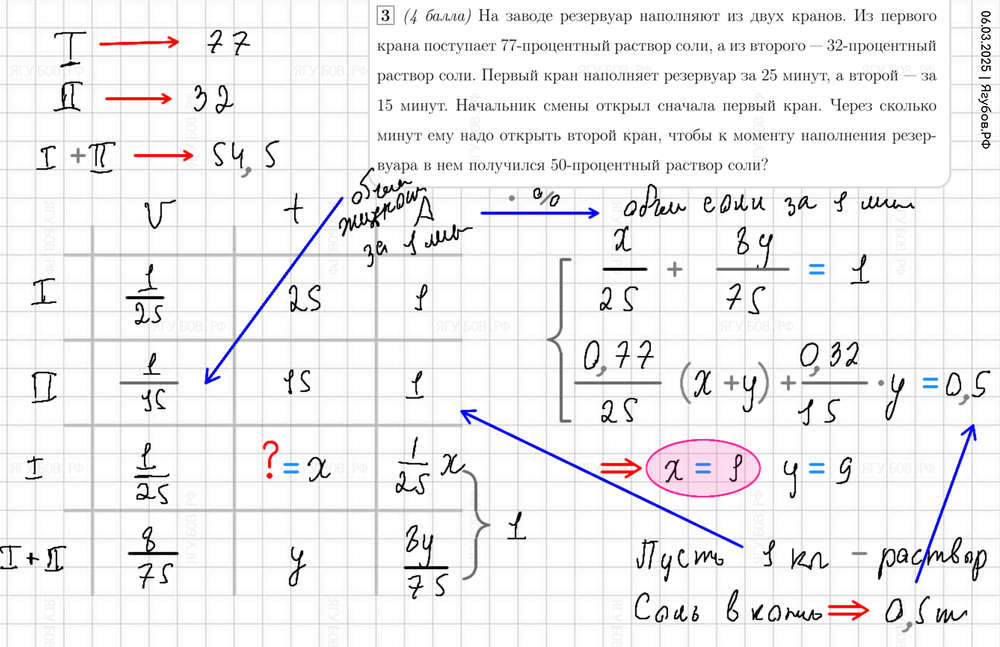 3 (4 балла) На заводе резервуар наполняют из двух кранов. Из первого
крана поступает 77-процентный раствор соли, а из второго — 32-процентный
раствор соли. Первый кран наполняет резервуар за 25 минут, а второй — за
15 минут. Начальник смены открыл сначала первый кран. Через сколько
минут ему надо открыть второй кран, чтобы к моменту наполнения резер-
вуара в нем получился 50-процентный раствор соли?
06.03.2025 | Ягубов.РФ
I → 77
II → 32
I + II → 54,5
V t A
объём
жидкости
за 1 мин
· % → объём соли за 1 мин
I 1/25 25 1
II 1/15 15 1
I 1/25 ? = x 1/25 x
I+II 8/75 y 8y/75
1
x/25 + 8y/75 = 1
0,77/25 (x + y) + 0,32/15 · y = 0,5
⇒ x = 1 y = 9
Пусть 1 кл – раствор
Соль в конце ⇒ 0,5